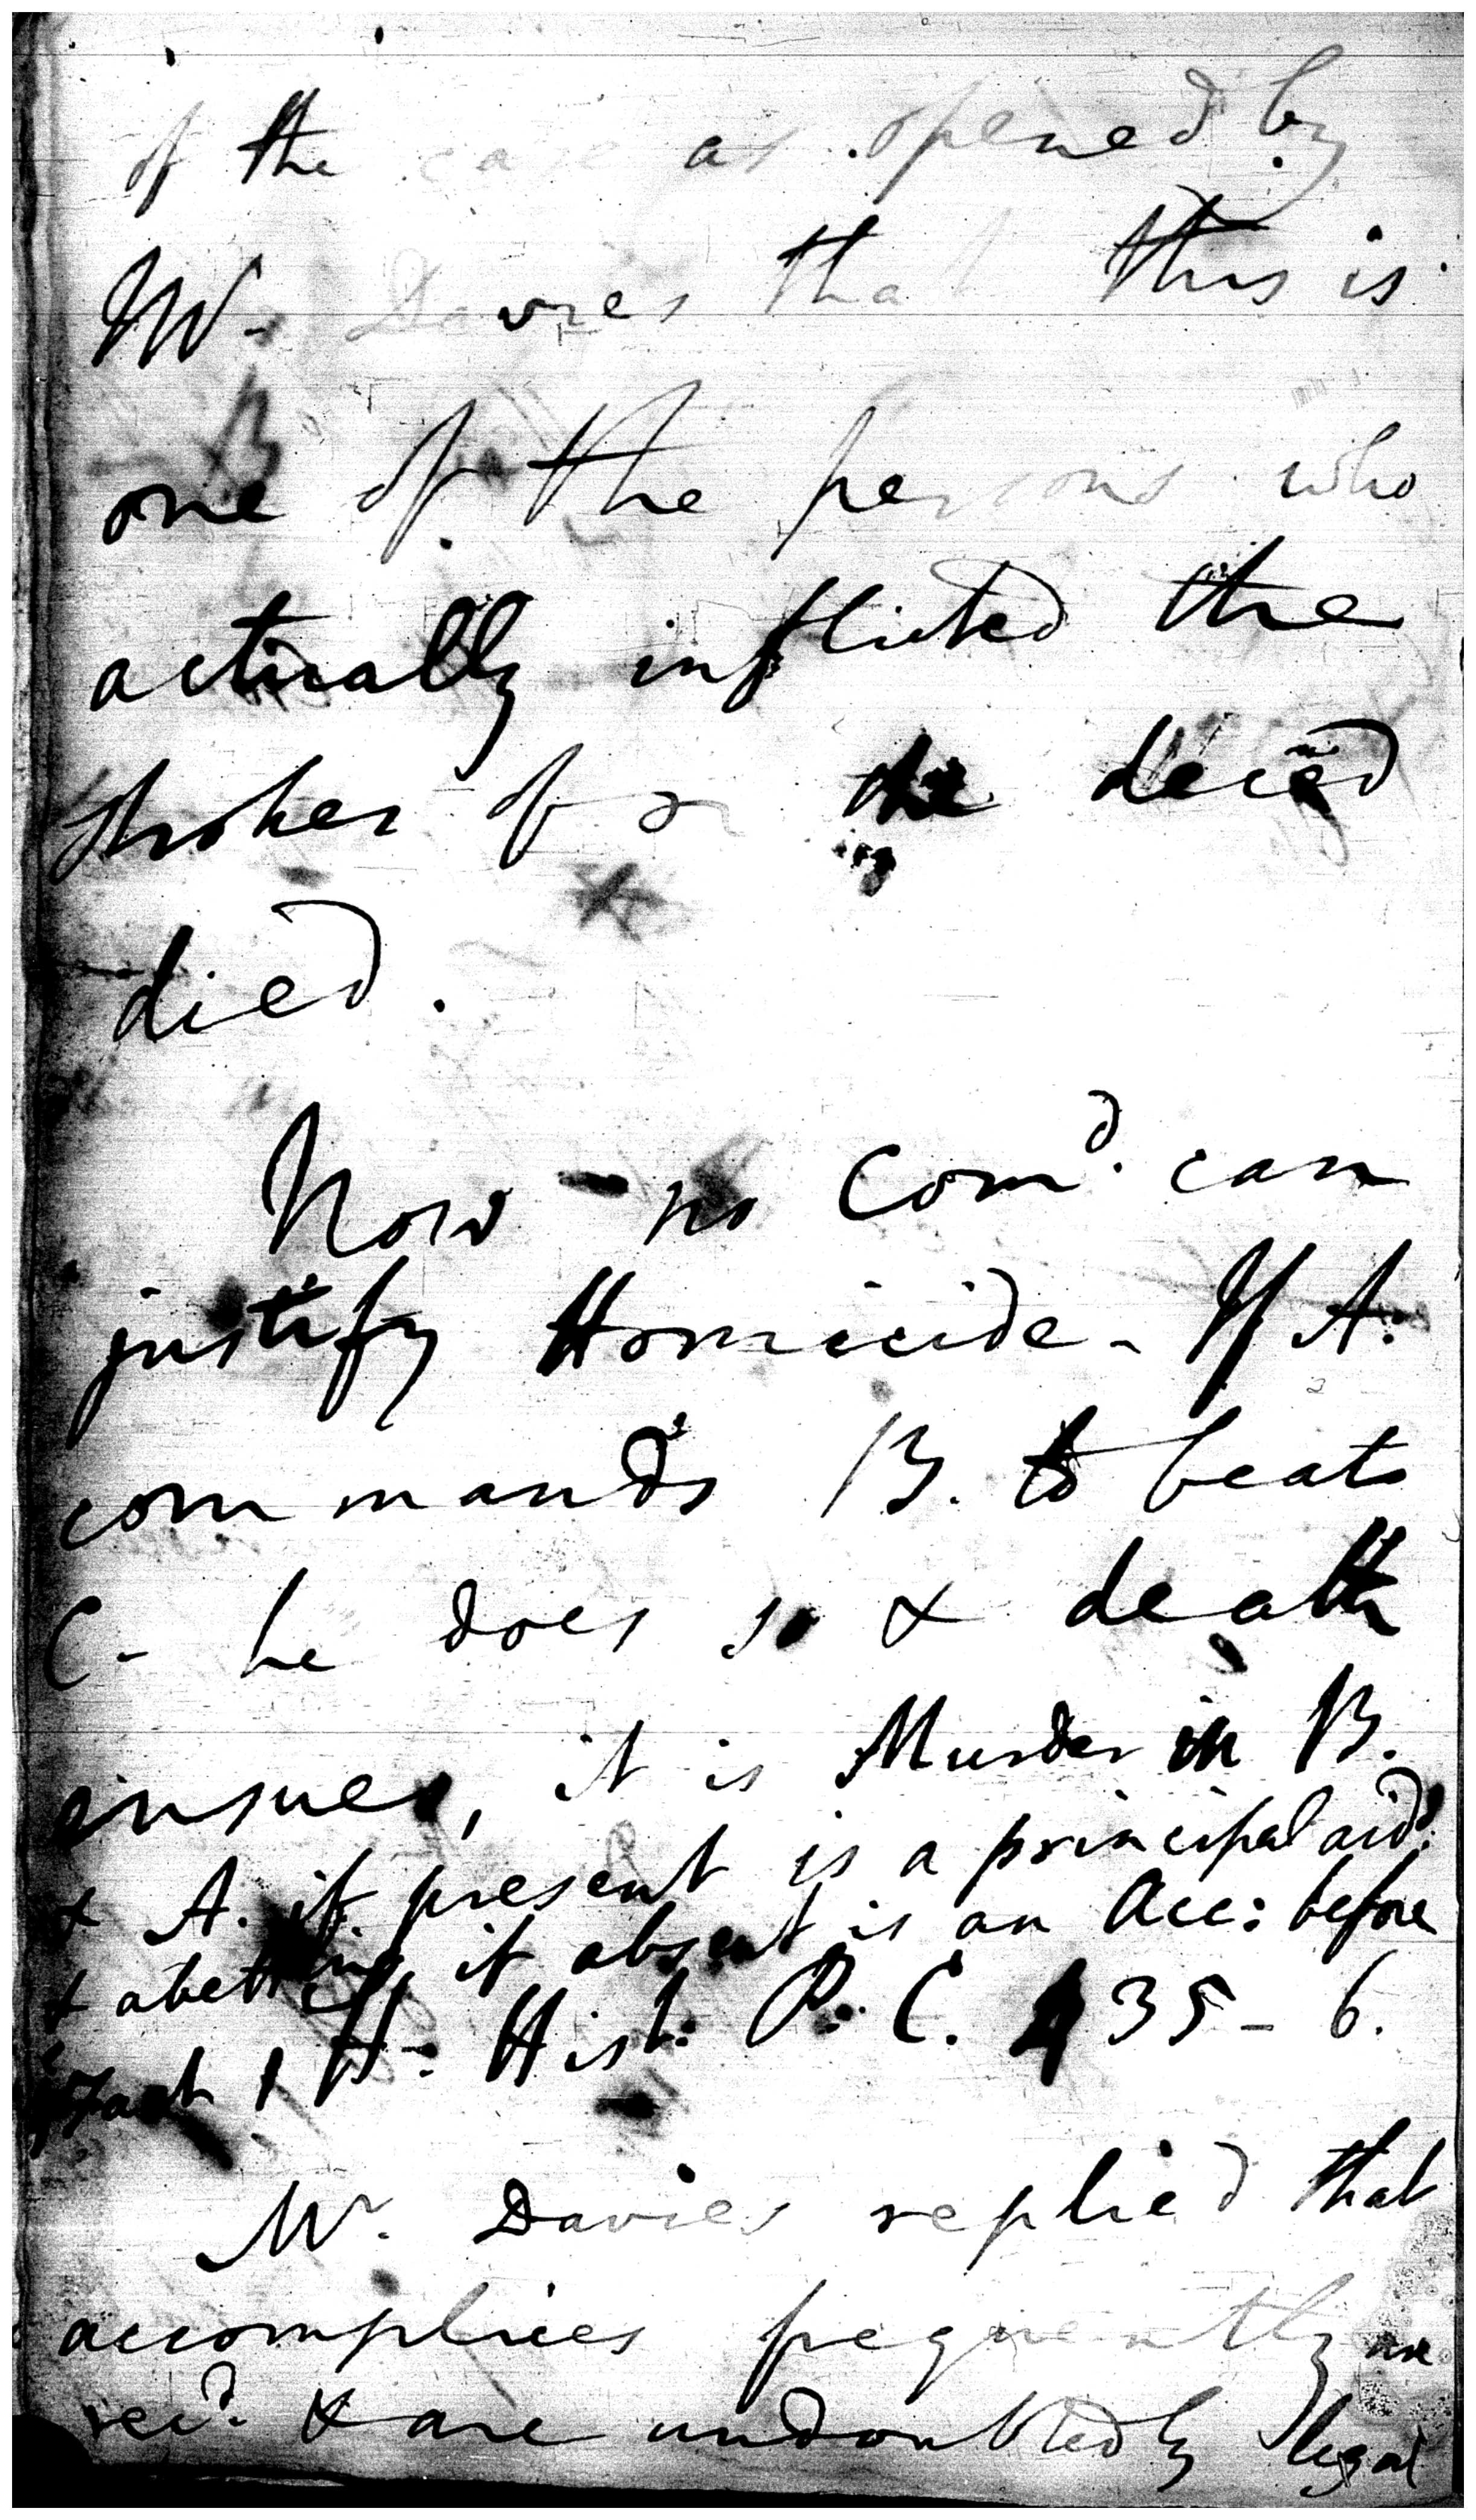 of the case as opened by
Mr Davies that this is
one of the persons who
actually inflicted the
strokes of wh the deced
died.
Now no Comd. can
justify Homicide - If A.
commands B. to beat
C - he does so & death
ensues, it is Murder in B.
& A. if present is a principal aidg
& abetting if absent is an Acc: before
ye Fact 1 H. Hist: P. C. 435 - 6.
Mr. Davies replied that
accomplices frequently are
recd. & are undoubtedly legal